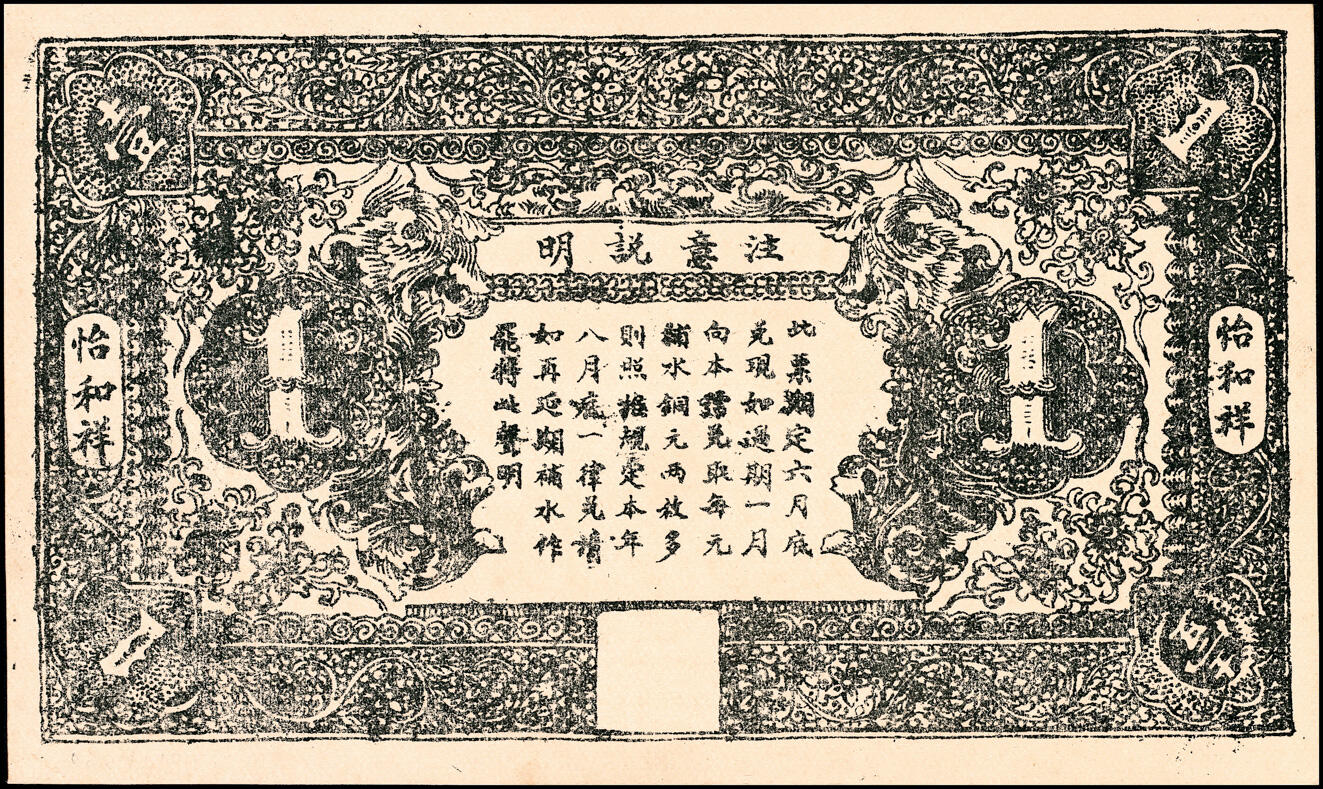 壹
1
注意説明
怡和祥
怡和祥
1
1
此票期定六月底
兑現如過期一月
向本號兑取每元
補水銅元兩枚多
則照推規定本年
八月底一律兑
如再延期補水作
罷將此聲明
1
壹